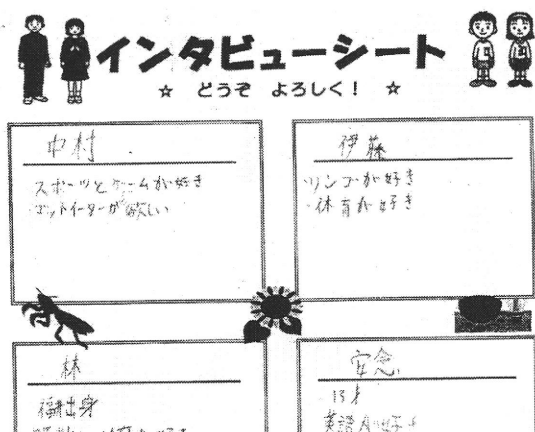 インタビューシート
☆ どうぞ よろしく! ☆
中村
スポーツとゲームが好き
ゴットイーターが欲しい
伊藤
・リンゴが好き
・体育が好き
林
福井出身
安念
13才
英語が好き